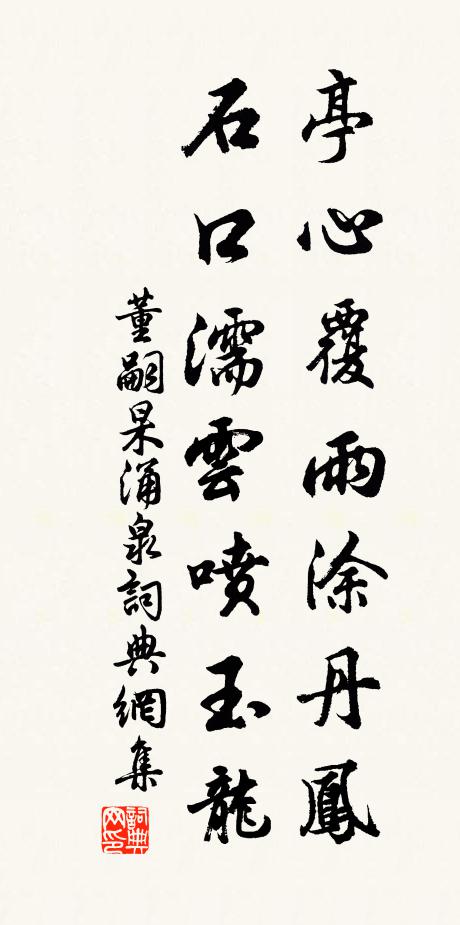 亭心覆雨涂丹鳳
石口濡雲噴玉龍
董嗣杲涌泉詞典網集
詞典網印